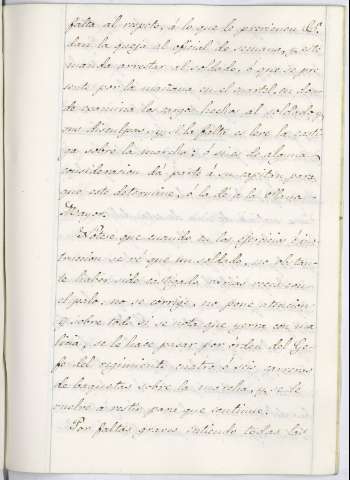 falta al respeto, á lo que le previenen
dan la queja al oficial de semana, y este
manda arrestar al soldado, ó que se pre
sente por la mañana en el cuartel en don
de examina los cargos hechos al soldado y
sus disculpas, y si la falta es leve la casti
ga sobre la marcha; ó si es de alguna
consideracion dá parte á su capitan, para
que este determine, ó la dé á la Plana
Mayor.
Nótese que cuando en los ejercicios ó ins
truccion se vé que un soldado, no obstan
te haber sido castigado varias veces con
el palo, no se corrige, no pone atencion
y sobre todo si se nota que yerra con ma
licia, se le hace pasar por órden del Ge
fe del regimiento cuatro ó seis carreras
de baquetas sobre la marcha, y se le
vuelve á vestir para que continue.
Por faltas graves entiendo todas las